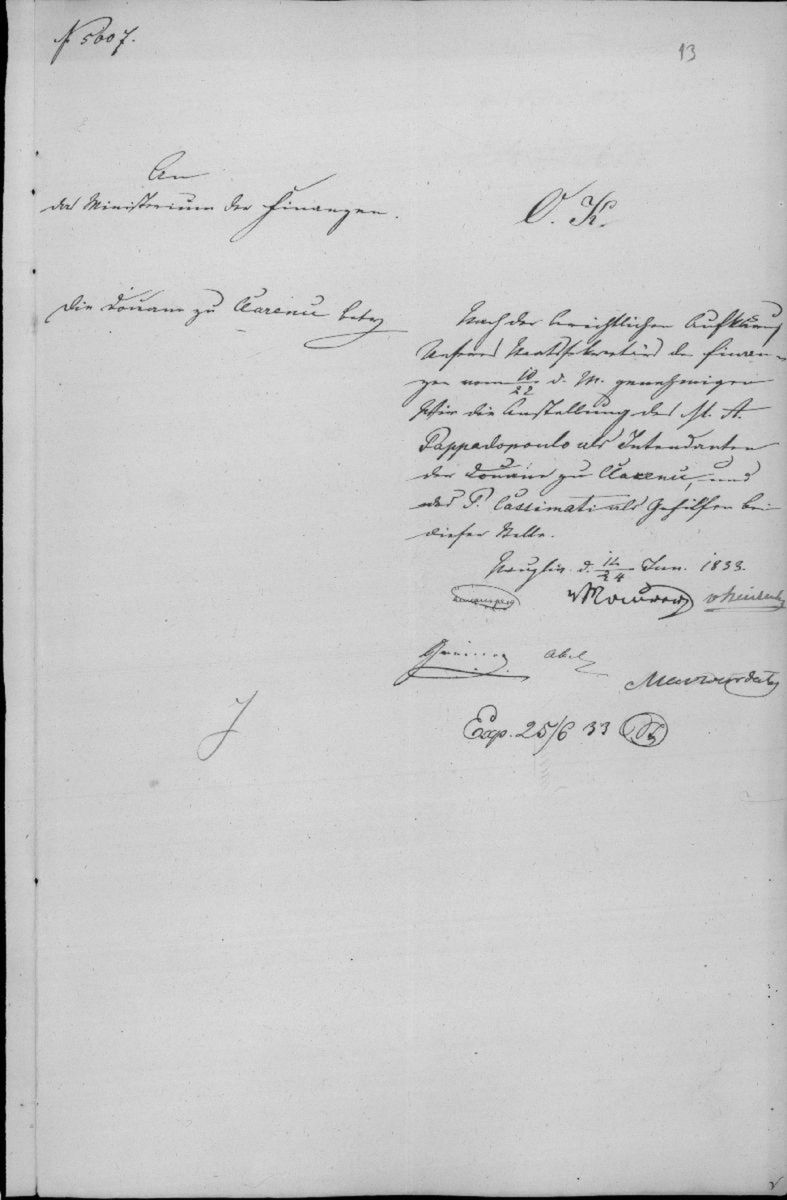 N 5607.
13
An
das Ministerium der Finanzen.
O. K.
Die Douane zu Clarenu betr
Nach der berichtlichen Aufklärung
Unseres Staatssekretärs der Finan-
zen vom 10/22 d. M. genehmigen
Wir die Anstellung des A.
Pappadopoulo als Intendanten
der Douane zu Clarenu, und
des P. Cassimati als Gehilfen bei
dieser Stelle.
Nauplia d. 12/24 Jun. 1833.
Armansperg vMaurer vHeideck
Abel
Maurocordato
Exp. 25/6 33